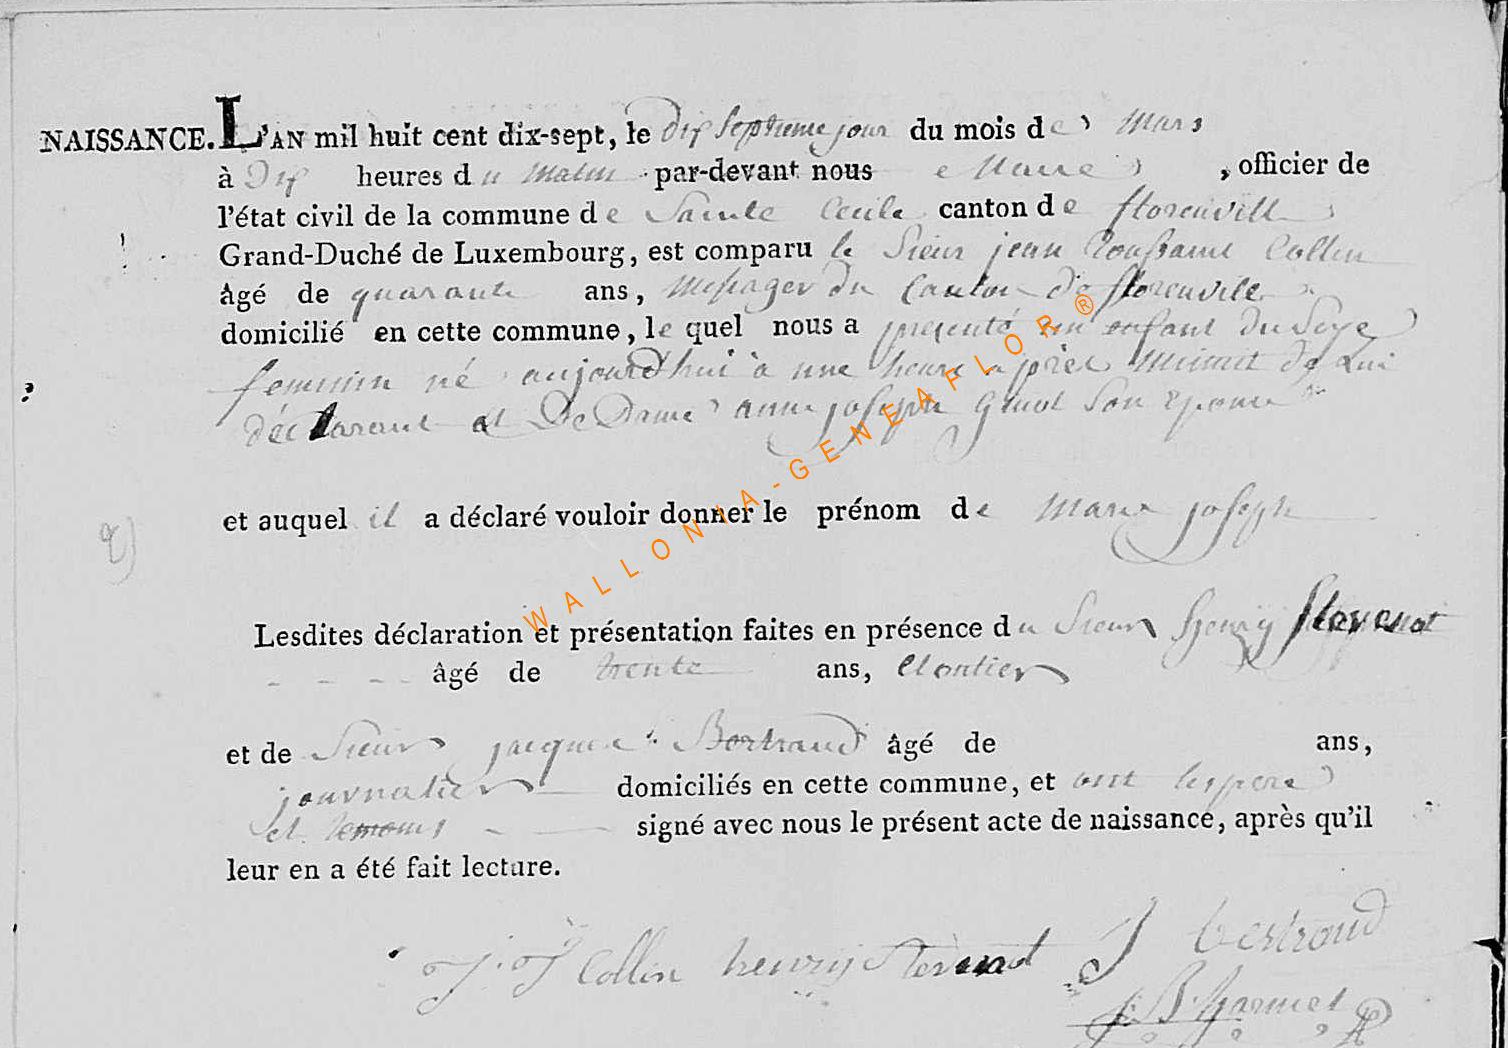 NAISSANCE. L'AN mil huit cent dix-sept, le dix Septieme jour du mois de Mars
à Dix heures du Matin par-devant nous Maire, officier de
l'état civil de la commune de Sainte Cecile canton de florenvill
Grand-Duché de Luxembourg, est comparu le Sieur jean Toussaint Collin
âgé de quarante ans, Messager du Canton de florenville
domicilié en cette commune, le quel nous a presenté un enfant du Sexe
feminin né aujourd'hui à une heure après Minuit de Lui
déclarant et De Dame anne joseph Son Epouse
et auquel il a déclaré vouloir donner le prénom de Marie joseph
Lesdites déclaration et présentation faites en présence du Sieur henry Stevenot
âgé de trente ans, Cloutier
et de Sieur jacque Bertrand âgé de ans,
journalier domiciliés en cette commune, et ont le pere
et temoins signé avec nous le présent acte de naissance, après qu'il
leur en a été fait lecture.
J. J Collin henry Stevenot J bertrand
WALLONIA-GENEAFLOR®